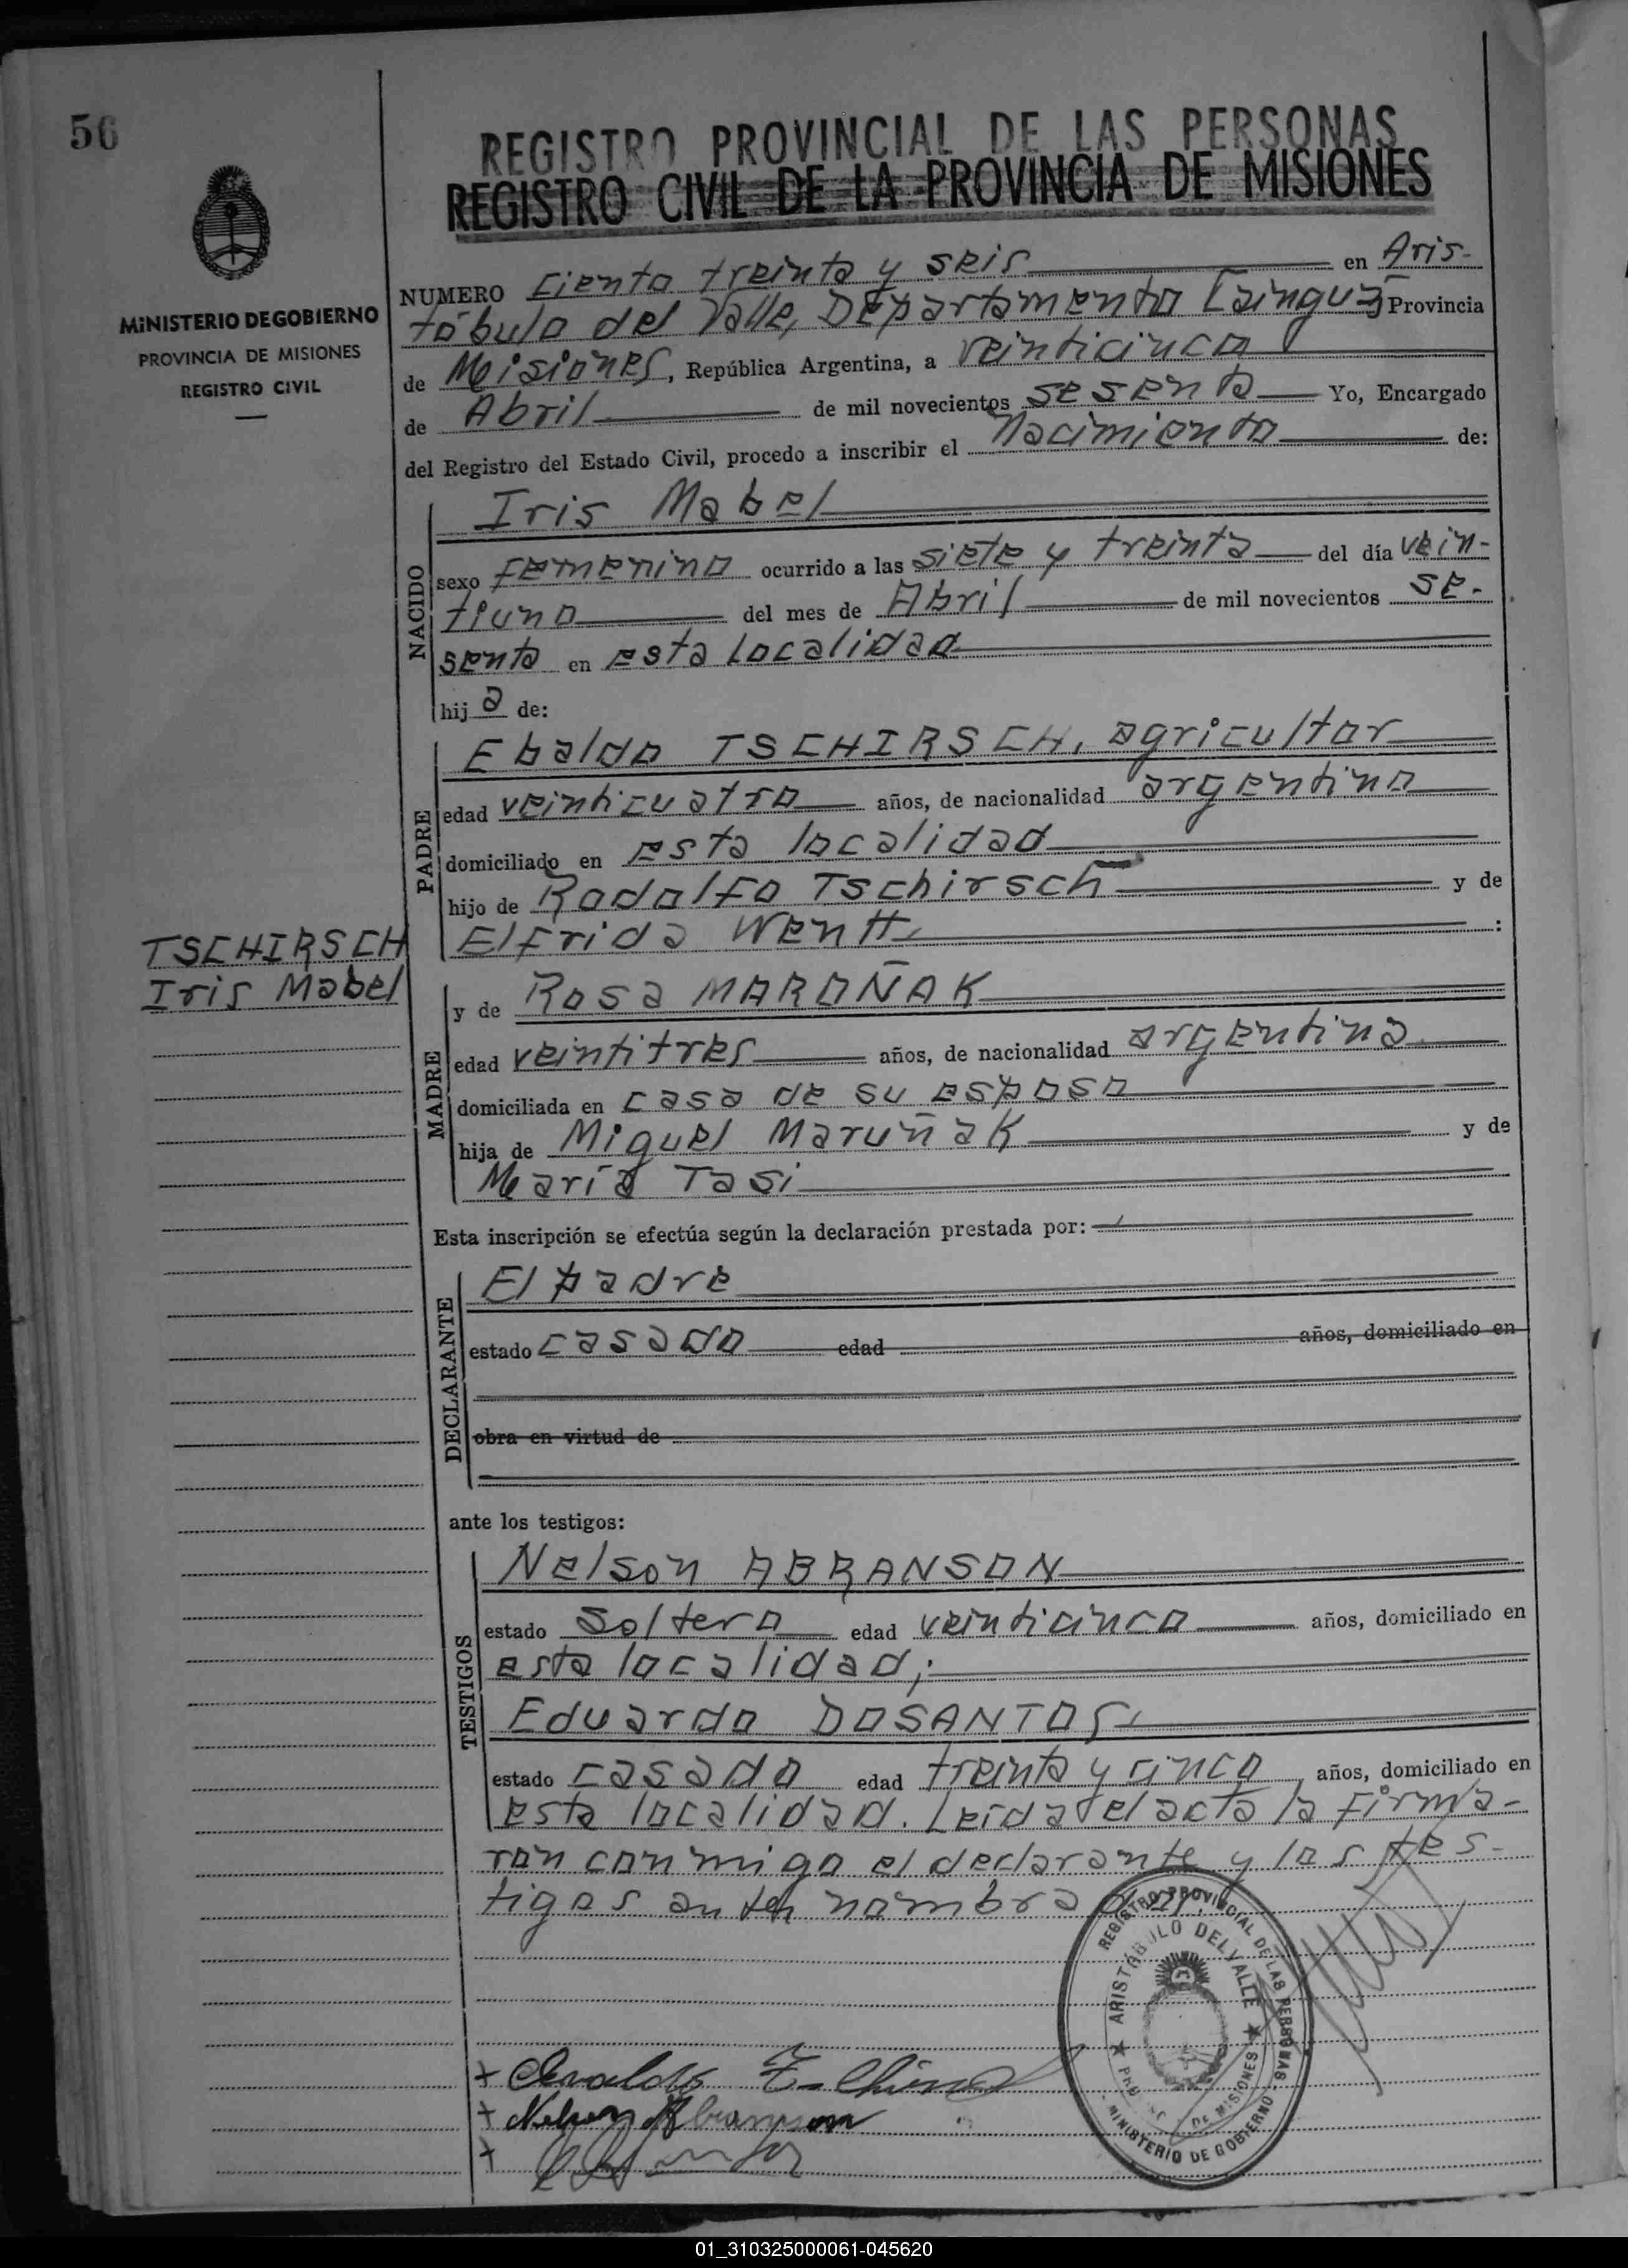 56
REGISTRO PROVINCIAL DE LAS PERSONAS
REGISTRO CIVIL DE LA PROVINCIA DE MISIONES
MINISTERIO DE GOBIERNO
PROVINCIA DE MISIONES
REGISTRO CIVIL
NUMERO Ciento treinta y seis en Aris-
tóbulo del Valle, Departamento Cainguá Provincia
de Misiones, República Argentina, a veinticinco
de Abril de mil novecientos sesenta Yo, Encargado
del Registro del Estado Civil, procedo a inscribir el Nacimiento de:
NACIDO
Iris Mabel
sexo femenino ocurrido a las siete y treinta del día vein-
tiuno del mes de Abril de mil novecientos se-
senta en esta localidad
hija de:
PADRE
Ebaldo TSCHIRSCH, agricultor
edad veinticuatro años, de nacionalidad argentina
domiciliado en esta localidad
hijo de Rodolfo Tschirsch y de
Elfrida Wentt :
TSCHIRSCH
Iris Mabel
MADRE
y de Rosa MAROÑAK
edad veintitres años, de nacionalidad argentina
domiciliada en casa de su esposo
hija de Miguel Maruñak y de
María Tasi
Esta inscripción se efectúa según la declaración prestada por:
DECLARANTE
El padre
estado casado edad años, domiciliado en
obra en virtud de
ante los testigos:
TESTIGOS
Nelson ABRANSON
estado soltero edad veinticinco años, domiciliado en
esta localidad;
Eduardo DOSANTOS
estado casado edad treinta y cinco años, domiciliado en
esta localidad. Leída el acta la firma-
ron conmigo el declarante y los tes-
tigos antes nombrados.
REGISTRO PROVINCIAL DE LAS PERSONAS
ARISTÓBULO DEL VALLE
DE MISIONES
MINISTERIO DE GOBIERNO
Nelson Abramson
01_310325000061-045620